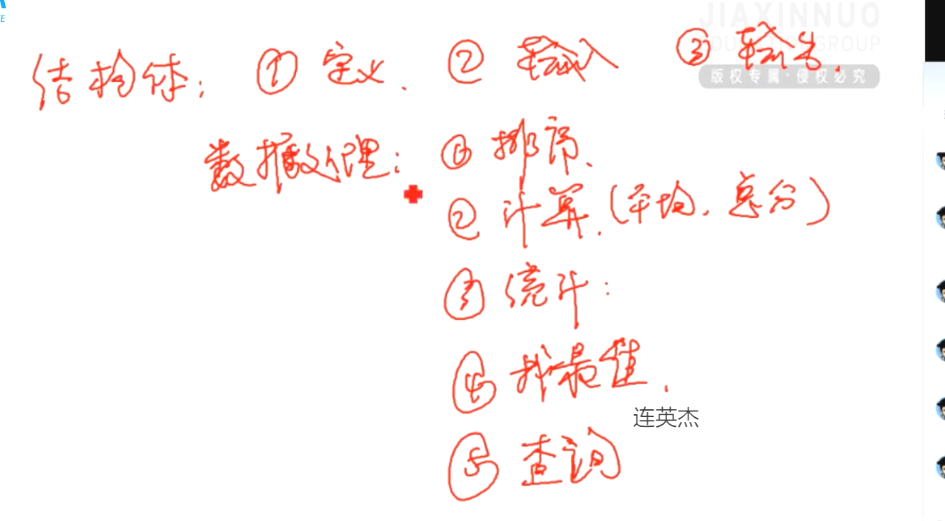 JIAXINNUO
GROUP
版权专属·侵权必究
结构体: ①定义. ②输入 ③输出.
数据处理: ①排序.
②计算.(平均.总分)
③统计:
④找最值.
连英杰
⑤查询